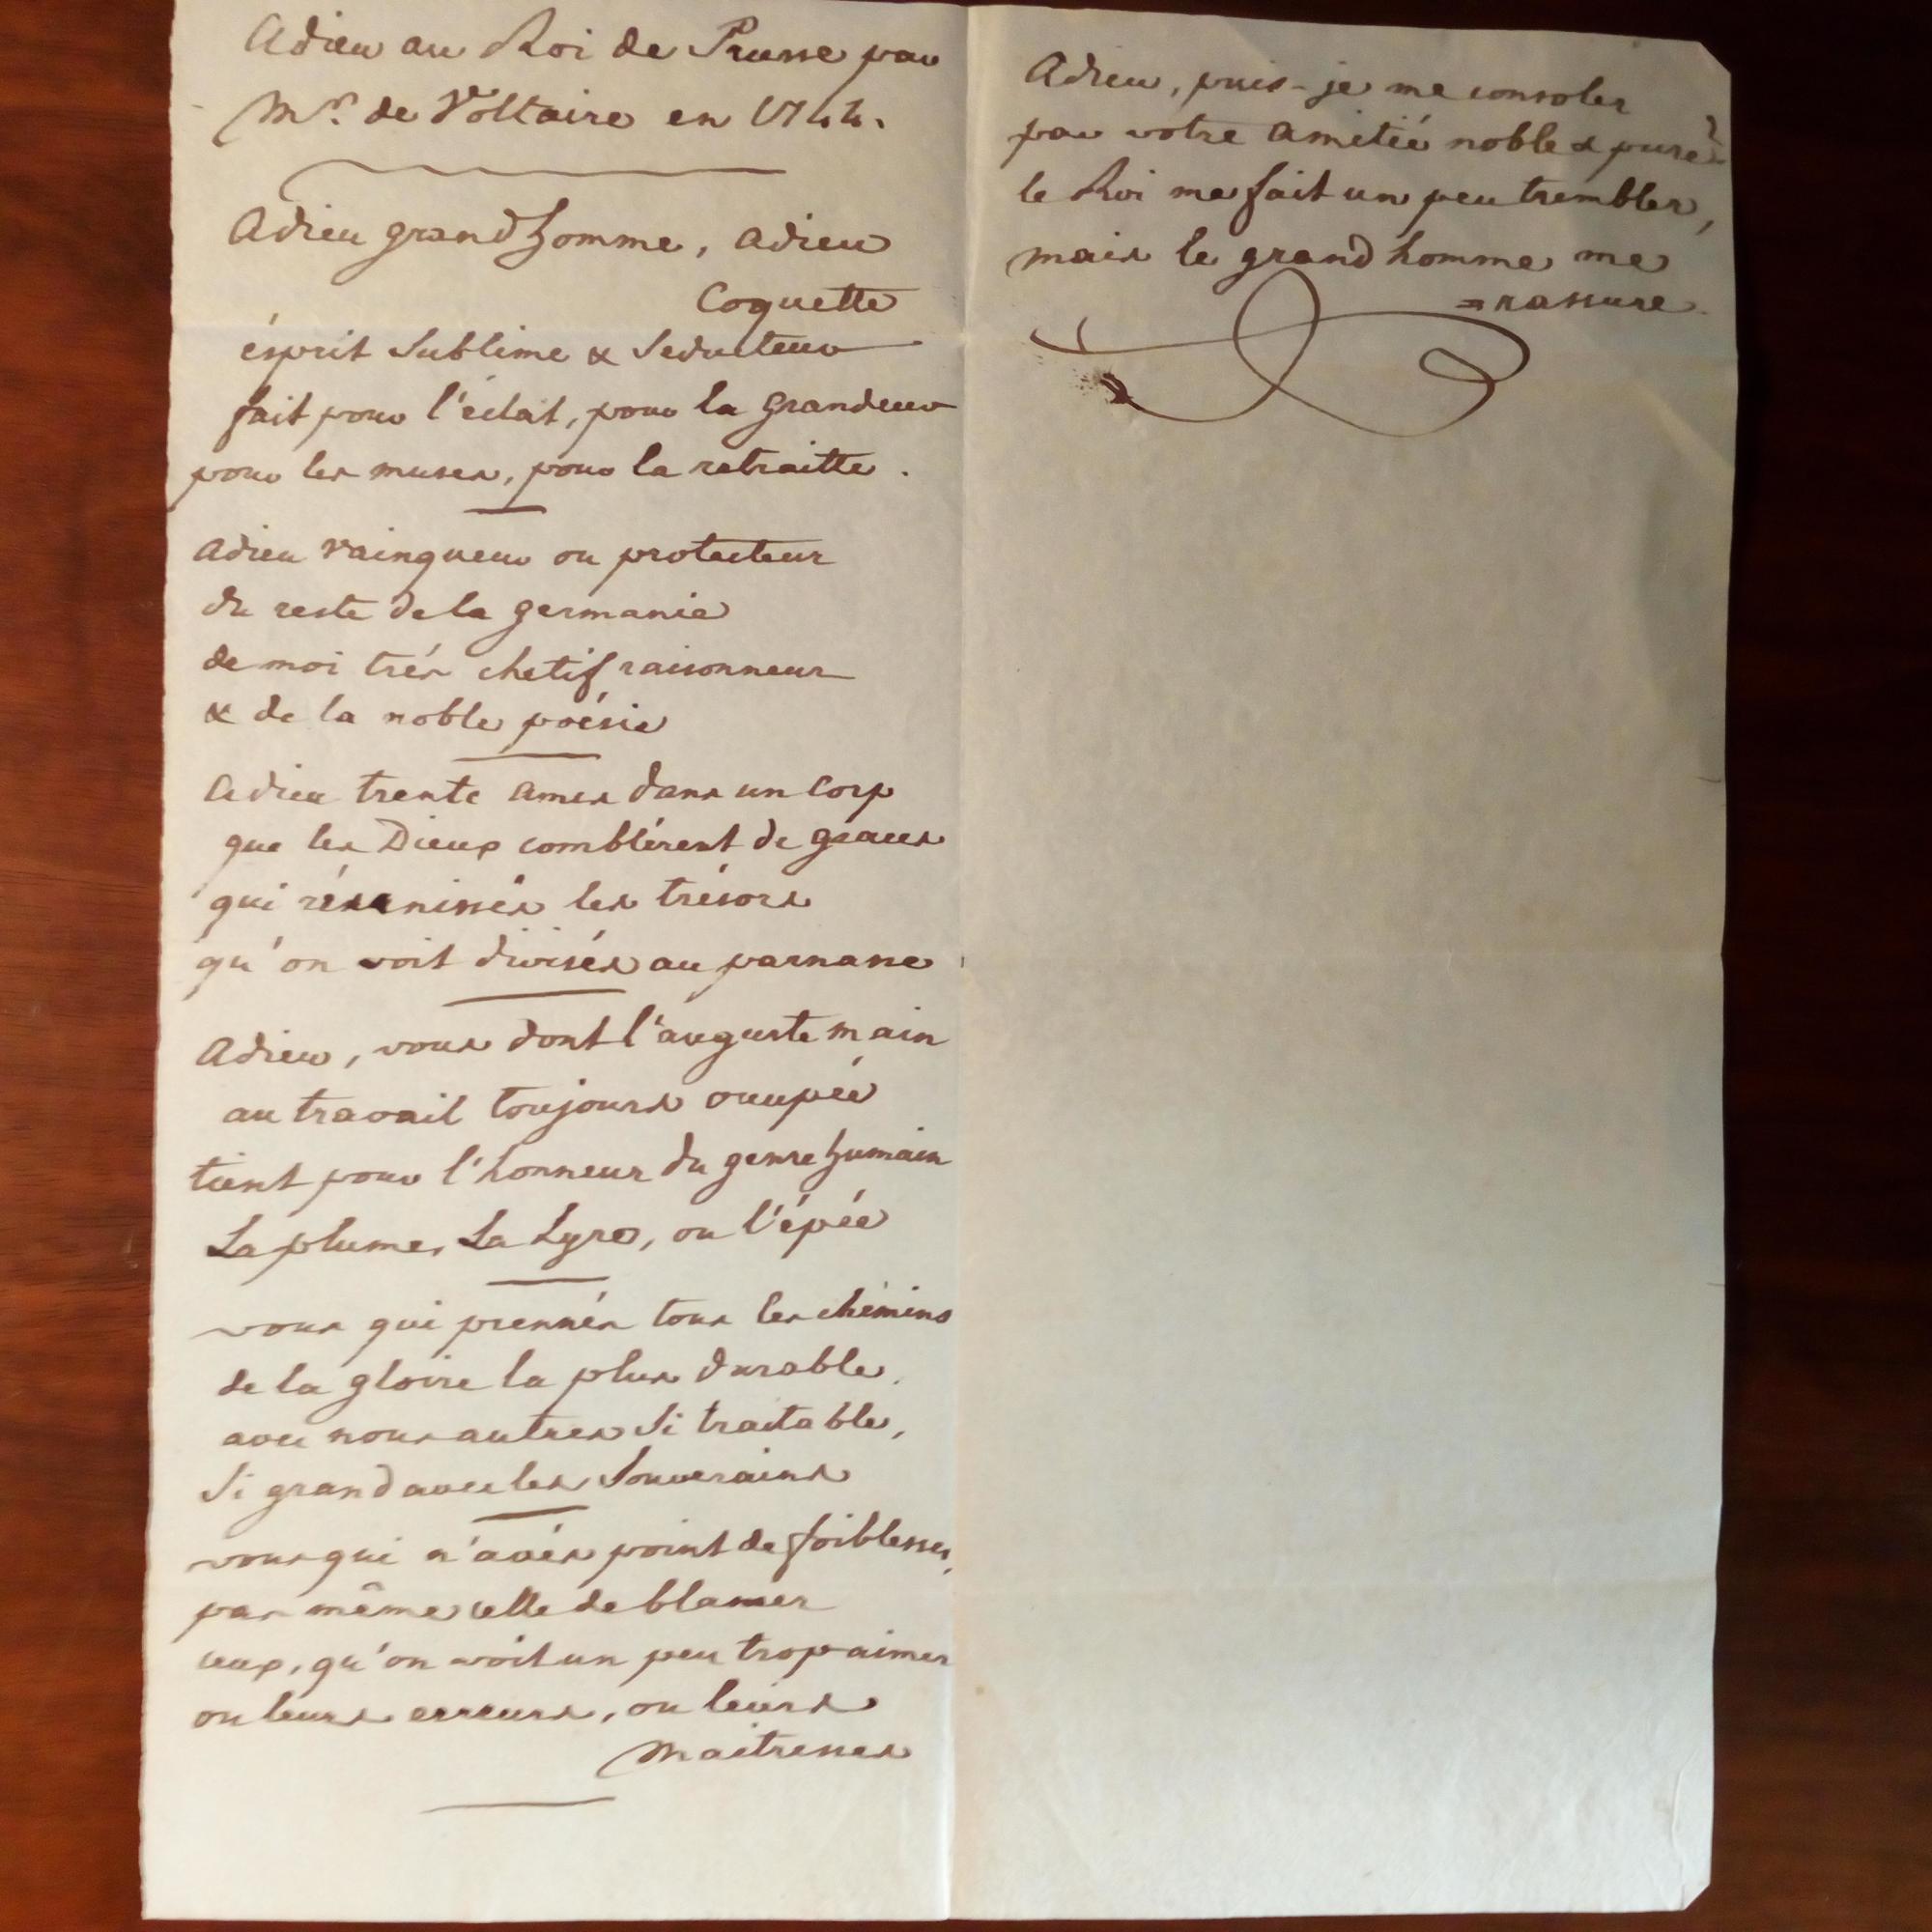 Adieu au Roi de Prusse par
Mr. de Voltaire en 1744.
Adieu grand homme, adieu
Coquette
ésprit Sublime & Seducteur
fait pour l'éclat, pour la grandeur
pour les muses, pour la retraitte.
Adieu vainqueur ou protecteur
du reste de la germanie
de moi trés chetif raisonneur
& de la noble poésie
Adieu trente ames dans un Corp
que les Dieux comblérent de graces
qui réunissés les trésors
qu'on voit divisés au parnasse
Adieu, vous dont l'auguste main
au travail toujours occupée
tient pour l'honneur du genre humain
La plume, La Lyre, ou l'épée
vous qui prennés tous les chémins
de la gloire la plus durable,
avec nous autres Si traitable,
Si grand avec les Souverains
vous qui n'avés point de foiblesses,
pas même celle de blamer
ceux, qu'on voit un peu trop aimer
ou leurs erreurs, ou leurs
Maitresses
Adieu, puis-je me consoler
par votre amitié noble & pure?
le Roi me fait un peu trembler,
mais le grand homme me
=rassure.